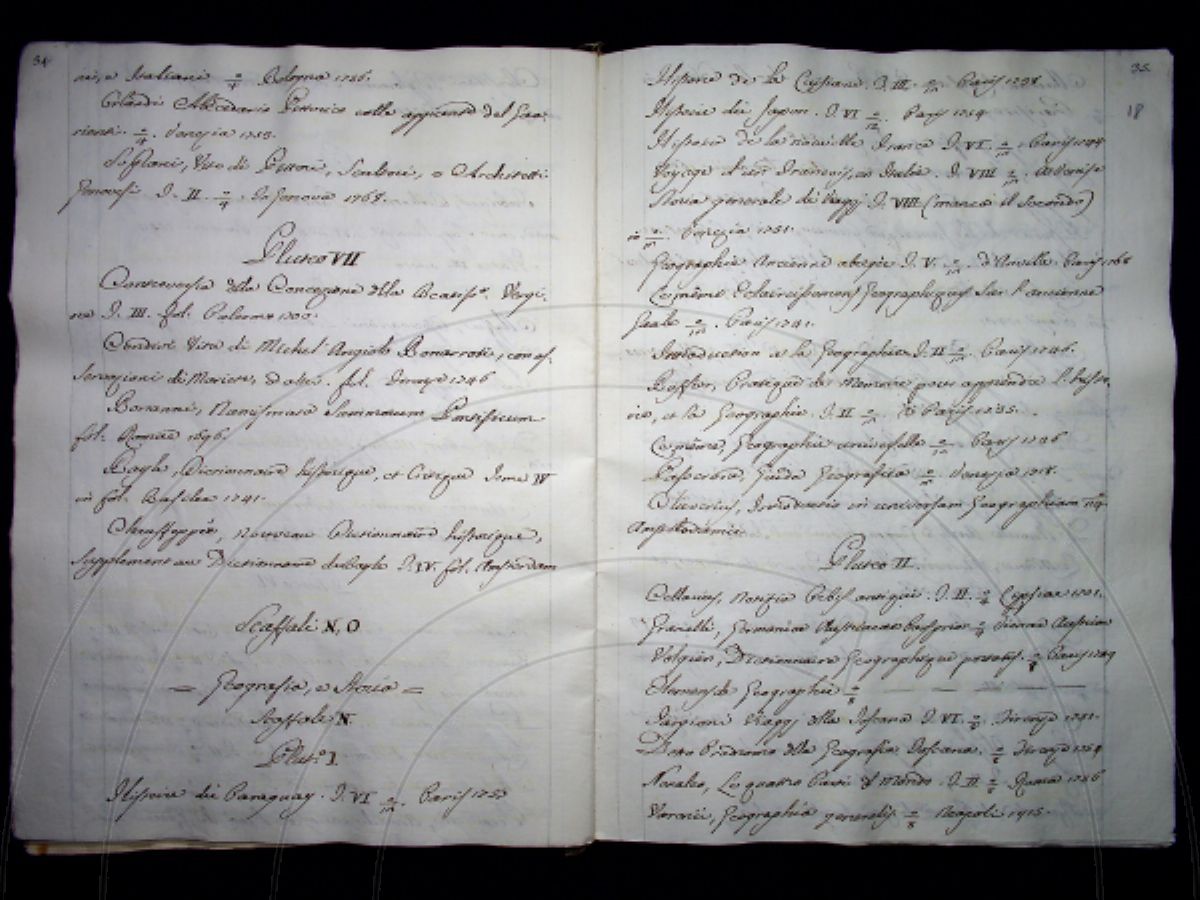 34
ni, e Italiani in 4 Bologna 1756.
Orlandi Abcedario Pittorico colle aggiunte del Gua-
rienti. in 4. Venezia 1753.
Soprani, Vite di Pittori, Scultori, e Architetti
Genovesi T. II. in 4. In Genova 1768.
Pluteo VII
Controversia della Concezione della Beatissa. Vergi-
ne T. III. fol. Palermo
Condivi Vita di Michel Angiolo Bonarroti, con os-
servazioni di Mariette, ed altri. fol. Firenze 1746
Bonanni, Numismata Summorum Pontificum
fol. Romae 1696.
Bayle, Dictionnaire historique, et Critique Tome IV
in fol. Baslea 1741.
Chauffeppié, Nouveau Dictionnaire historique,
Supplement au Dictionnaire de Bayle T. IV. fol. Amsterdam
Scaffali N, O
= Geografia, e Storia =
Scaffale N.
Plut.o I.
Histoire du Paraguay. T. VI in 12. Paris
35
18
Histoire de la T. III. in 12. Paris
Histoire du Japon. T. VI in 12. Paris 1754
Histoire de la nouvelle France T. VI. in 12. Paris 1744
Voyage d'un François, en Italie. T. VIII in 12. a Venise
Storia generale di Viaggj T. VIII (manca il secondo)
in 12. Venezia 1751.
Geographie Ancienne abregée T. V. in 12. d'Anville Paris 1768
Le même Eclaircissemens Geographiques sur l'ancienne
Gaule in 12. Paris 1741.
Introduction a la Geographie T. II in 12. Paris 1746.
Buffier, Pratique de Memoire pour apprendre l'histoi-
re, et la Geographie. T. II in 12. Paris
Le même, Geographie universelle in 12 Paris 1746
Guida Geografica in 12. Venezia
Cluverius, Introductio in universam Geographiam in 4.
Amstelodami
Pluteo II.
Cellarius, Notitia Orbis antiqui. T. II. in 4 Lipsiae 1701.
Granelli, Germaniae Austriacae in 4 Viennae Austriae
Volgien, Dictionnaire Geographique portatif. in 8 Paris 1749
Elemens de Geographie in 8
Targioni Viaggj della Toscana T. VI. in 8. Firenze
Detto Prodromo della Geografia Toscana. in 8 Firenze 1754
Le quattro Parti del Mondo. T. II in 8. Roma 1746
Varenii, Geographia generalis. in 8 Neapoli 1715.